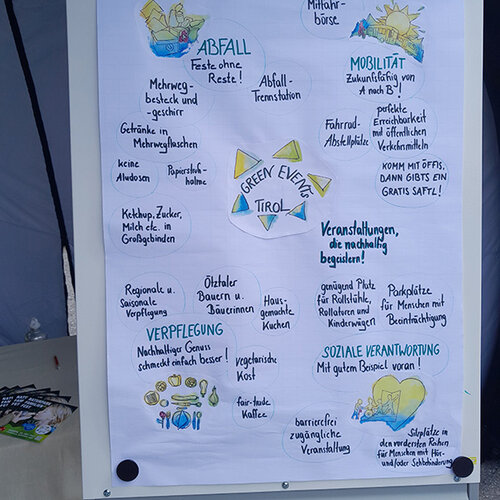 Mitfahr-
börse
ABFALL
Feste ohne
Reste!
Mehrweg-
besteck und
-geschirr
Abfall-
Trennstation
Getränke in
Mehrwegflaschen
keine
Aludosen
Papierstroh-
halme
Ketchup, Zucker,
Milch etc. in
Großgebinden
MOBILITÄT
Zukunftsfähig von
A nach B!
Fahrrad-
Abstellplätze
perfekte
Erreichbarkeit
mit öffentlichen
Verkehrsmitteln
KOMM MIT ÖFFIS,
DANN GIBTS EIN
GRATIS SAFTL!
GREEN EVENTS
TIROL
Veranstaltungen,
die nachhaltig
begeistern!
Regionale u.
Saisonale
Verpflegung
Ötztaler
Bauern u.
Bäuerinnen
Haus-
gemachte
Kuchen
VERPFLEGUNG
Nachhaltiger Genuss
schmeckt einfach besser!
vegetarische
Kost
fair-trade
Kaffee
genügend Platz
für Rollstühle,
Rollatoren und
Kinderwägen
Parkplätze
für Menschen mit
Beeinträchtigung
SOZIALE VERANTWORTUNG
Mit gutem Beispiel voran!
barrierefrei
zugängliche
Veranstaltung
Sitzplätze in
den vordersten Reihen
für Menschen mit Hör-
und/oder Sehbehinderung